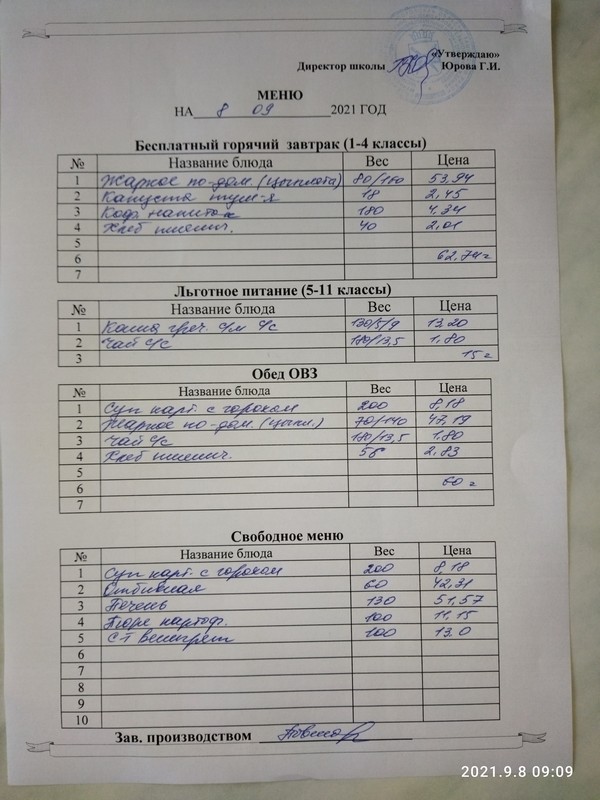 «Утверждаю»
Директор школы Юрова Г.И.
МЕНЮ
НА 8 09 2021 ГОД
Бесплатный горячий завтрак (1-4 классы)
№ Название блюда Вес Цена
1 Жаркое по-дом. (цыплята) 80/180 53,94
2 Капуста туш-я 18 2,45
3 Коф. напиток 180 4,34
4 Хлеб пшенич. 40 2,01
5
6 62,74
7
Льготное питание (5-11 классы)
№ Название блюда Вес Цена
1 Каша греч. с/м с/с 130/5/9 13,20
2 Чай с/с 180/13,5 1,80
3 15
Обед ОВЗ
№ Название блюда Вес Цена
1 Суп карт. с горохом 200 8,18
2 Жаркое по-дом. (цыпл.) 70/140 47,19
3 Чай с/с 180/13,5 1,80
4 Хлеб пшенич. 56 2,83
5
6 60
7
Свободное меню
№ Название блюда Вес Цена
1 Суп карт. с горохом 200 8,18
2 Отбивная 60 42,31
3 Печень 130 51,57
4 Пюре картоф. 100 11,15
5 С-т венигрет 100 13,0
6
7
8
9
10
Зав. производством
2021.9.8 09:09